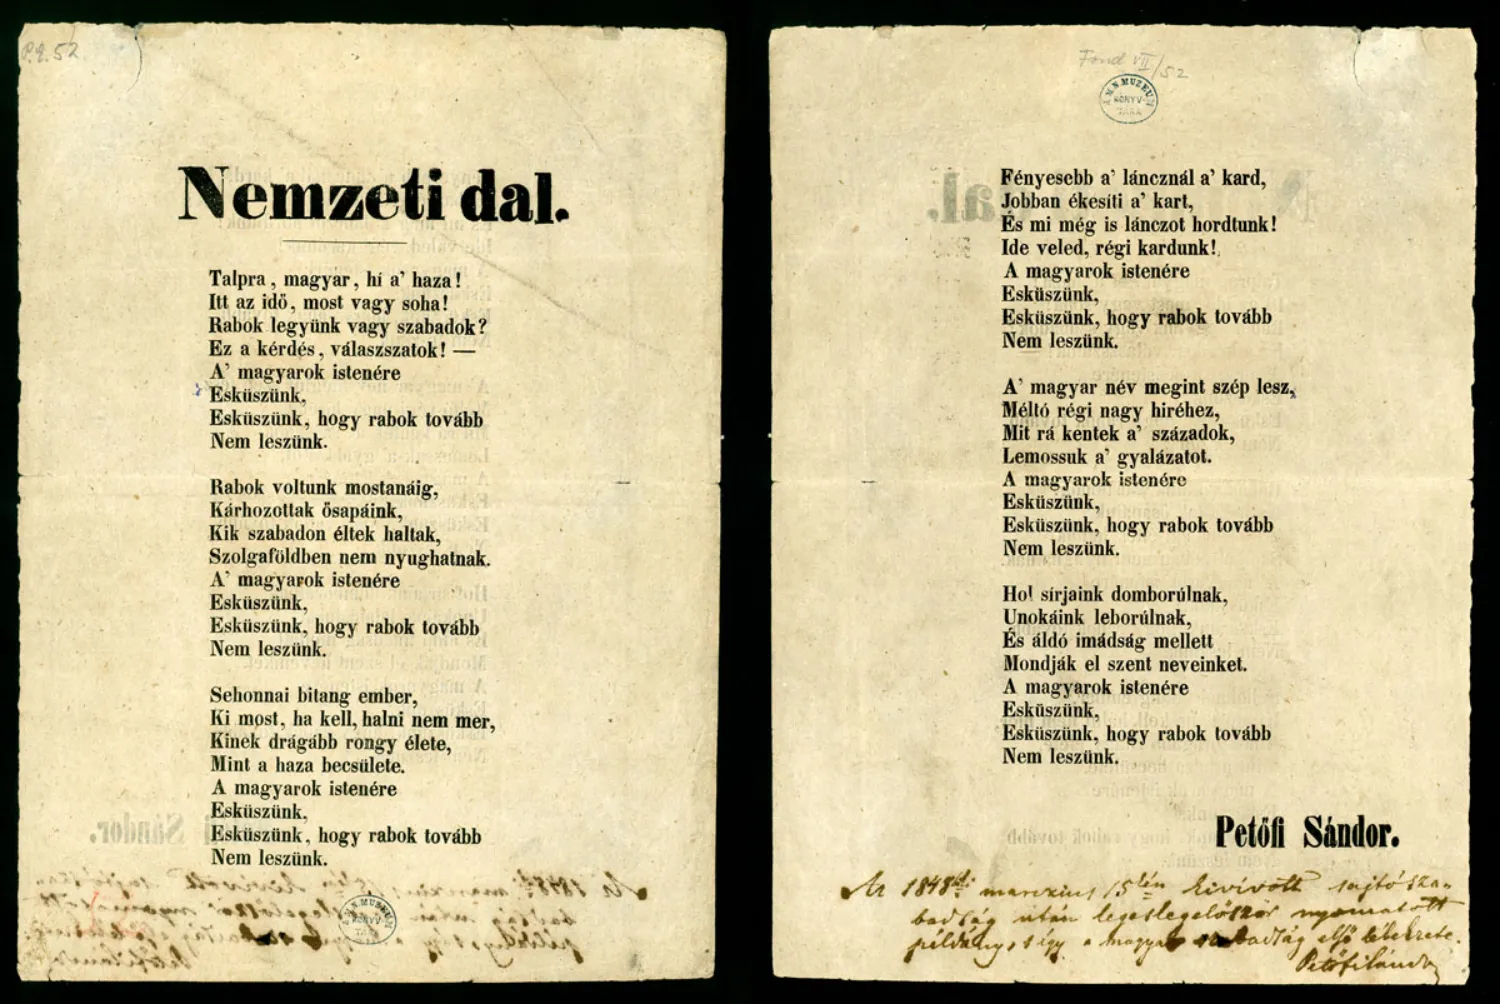 P.g. 52
Nemzeti dal.
Talpra, magyar, hí a' haza!
Itt az idő, most vagy soha!
Rabok legyünk vagy szabadok?
Ez a kérdés, válaszszatok! —
A' magyarok istenére
Esküszünk,
Esküszünk, hogy rabok tovább
Nem leszünk.
Rabok voltunk mostanáig,
Kárhozottak ősapáink,
Kik szabadon éltek haltak,
Szolgaföldben nem nyughatnak.
A' magyarok istenére
Esküszünk,
Esküszünk, hogy rabok tovább
Nem leszünk.
Sehonnai bitang ember,
Ki most, ha kell, halni nem mer,
Kinek drágább rongy élete,
Mint a haza becsülete.
A magyarok istenére
Esküszünk,
Esküszünk, hogy rabok tovább
Nem leszünk.
M.N.MUZEUM
KÖNYV-
TÁRA
Fond VII/52
M.N.MUZEUM
KÖNYV-
TÁRA
Fényesebb a' láncznál a' kard,
Jobban ékesíti a' kart,
És mi még is lánczot hordtunk!
Ide veled, régi kardunk!
A magyarok istenére
Esküszünk,
Esküszünk, hogy rabok tovább
Nem leszünk.
A' magyar név megint szép lesz,
Méltó régi nagy hiréhez,
Mit rá kentek a' századok,
Lemossuk a' gyalázatot.
A magyarok istenére
Esküszünk,
Esküszünk, hogy rabok tovább
Nem leszünk.
Hol sírjaink domborúlnak,
Unokáink leborúlnak,
És áldó imádság mellett
Mondják el szent neveinket.
A magyarok istenére
Esküszünk,
Esküszünk, hogy rabok tovább
Nem leszünk.
Petőfi Sándor.
Az 1848diki marczius 15kén kivívott sajtósza-
badság után legeslegelőször nyomatott
példány, s így a magyar szabadság első lélekzete.
Petőfi Sándor